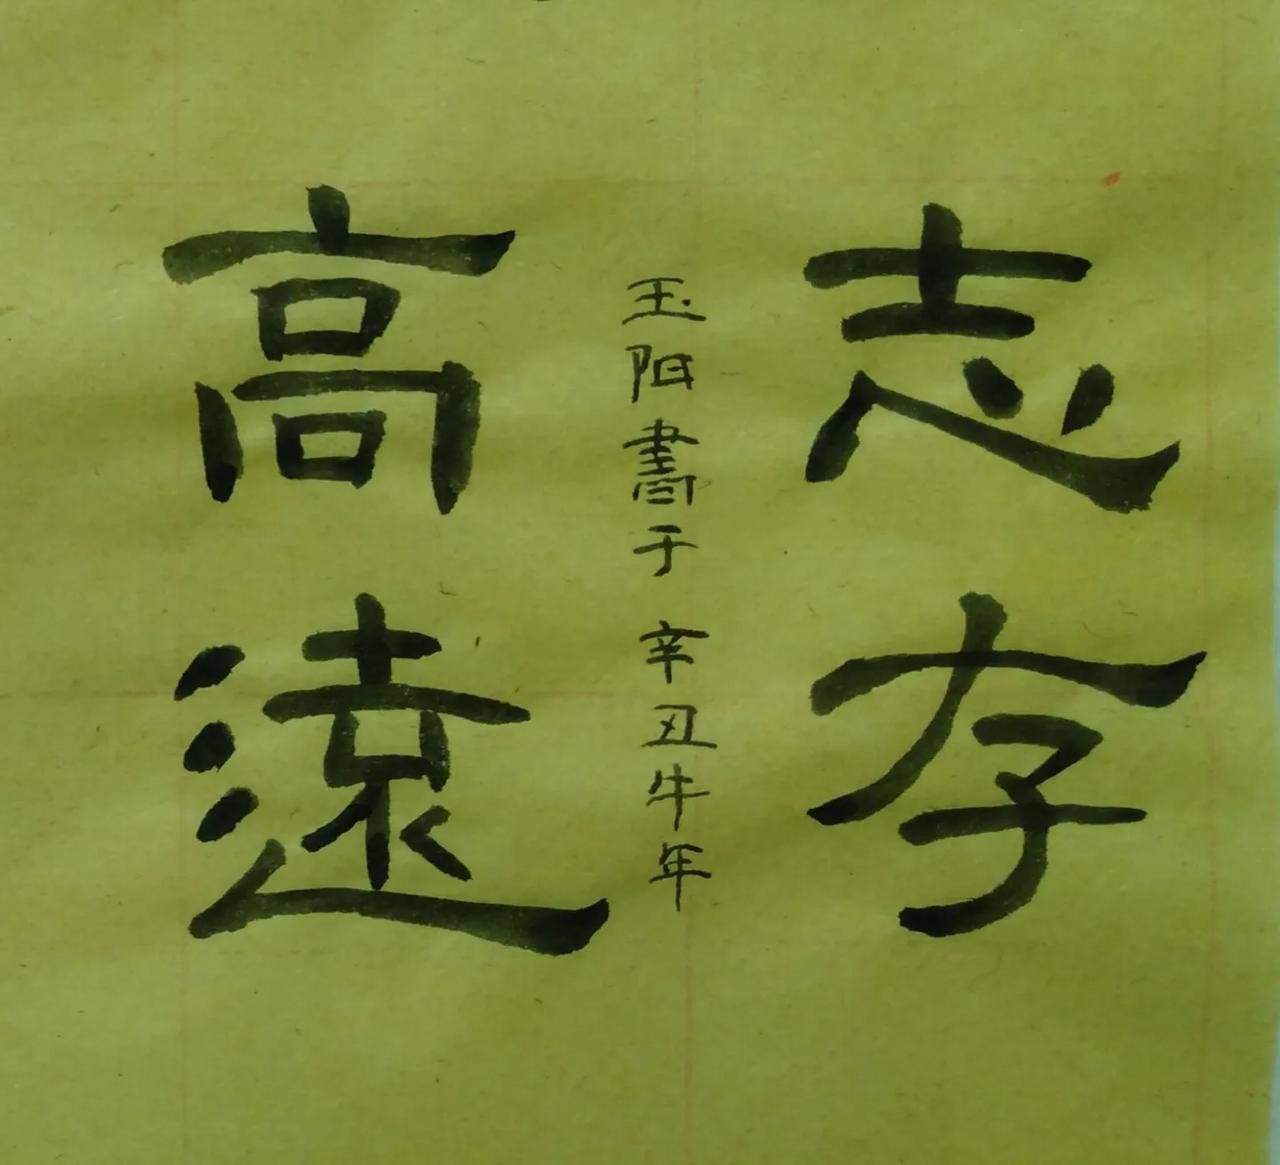 志存
玉阳書于辛丑牛年
高遠